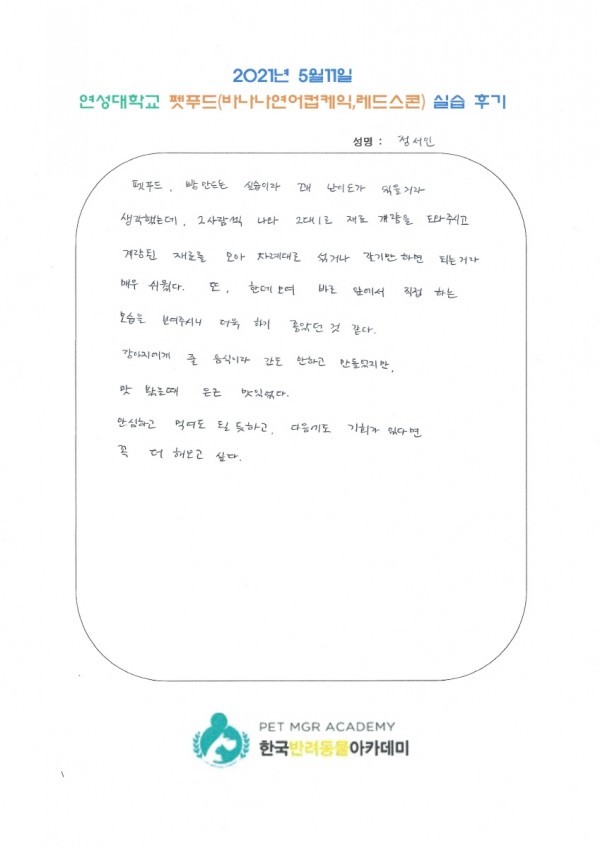 2021년 5월11일
연성대학교 펫푸드(바나나연어컵케익,레드스콘) 실습 후기
성명 : 정서인
펫푸드, 빵 만드는 실습이라 꽤 난이도가 있을거라
생각했는데, 2사람씩 나와 2대1로 재료 계량을 도와주시고
계량된 재료를 모아 차례대로 섞거나 갈기만 하면 되는거라
매우 쉬웠다. 또, 한데모여 바로 앞에서 직접 하는
모습을 보여주시니 더욱 하기 좋았던 것 같다.
강아지에게 줄 음식이라 간도 안하고 만들었지만,
맛 봤을때 은근 맛있었다.
안심하고 먹여도 될 듯하고, 다음에도 기회가 있다면
꼭 더 해보고 싶다.
PET MGR ACADEMY
한국반려동물아카데미